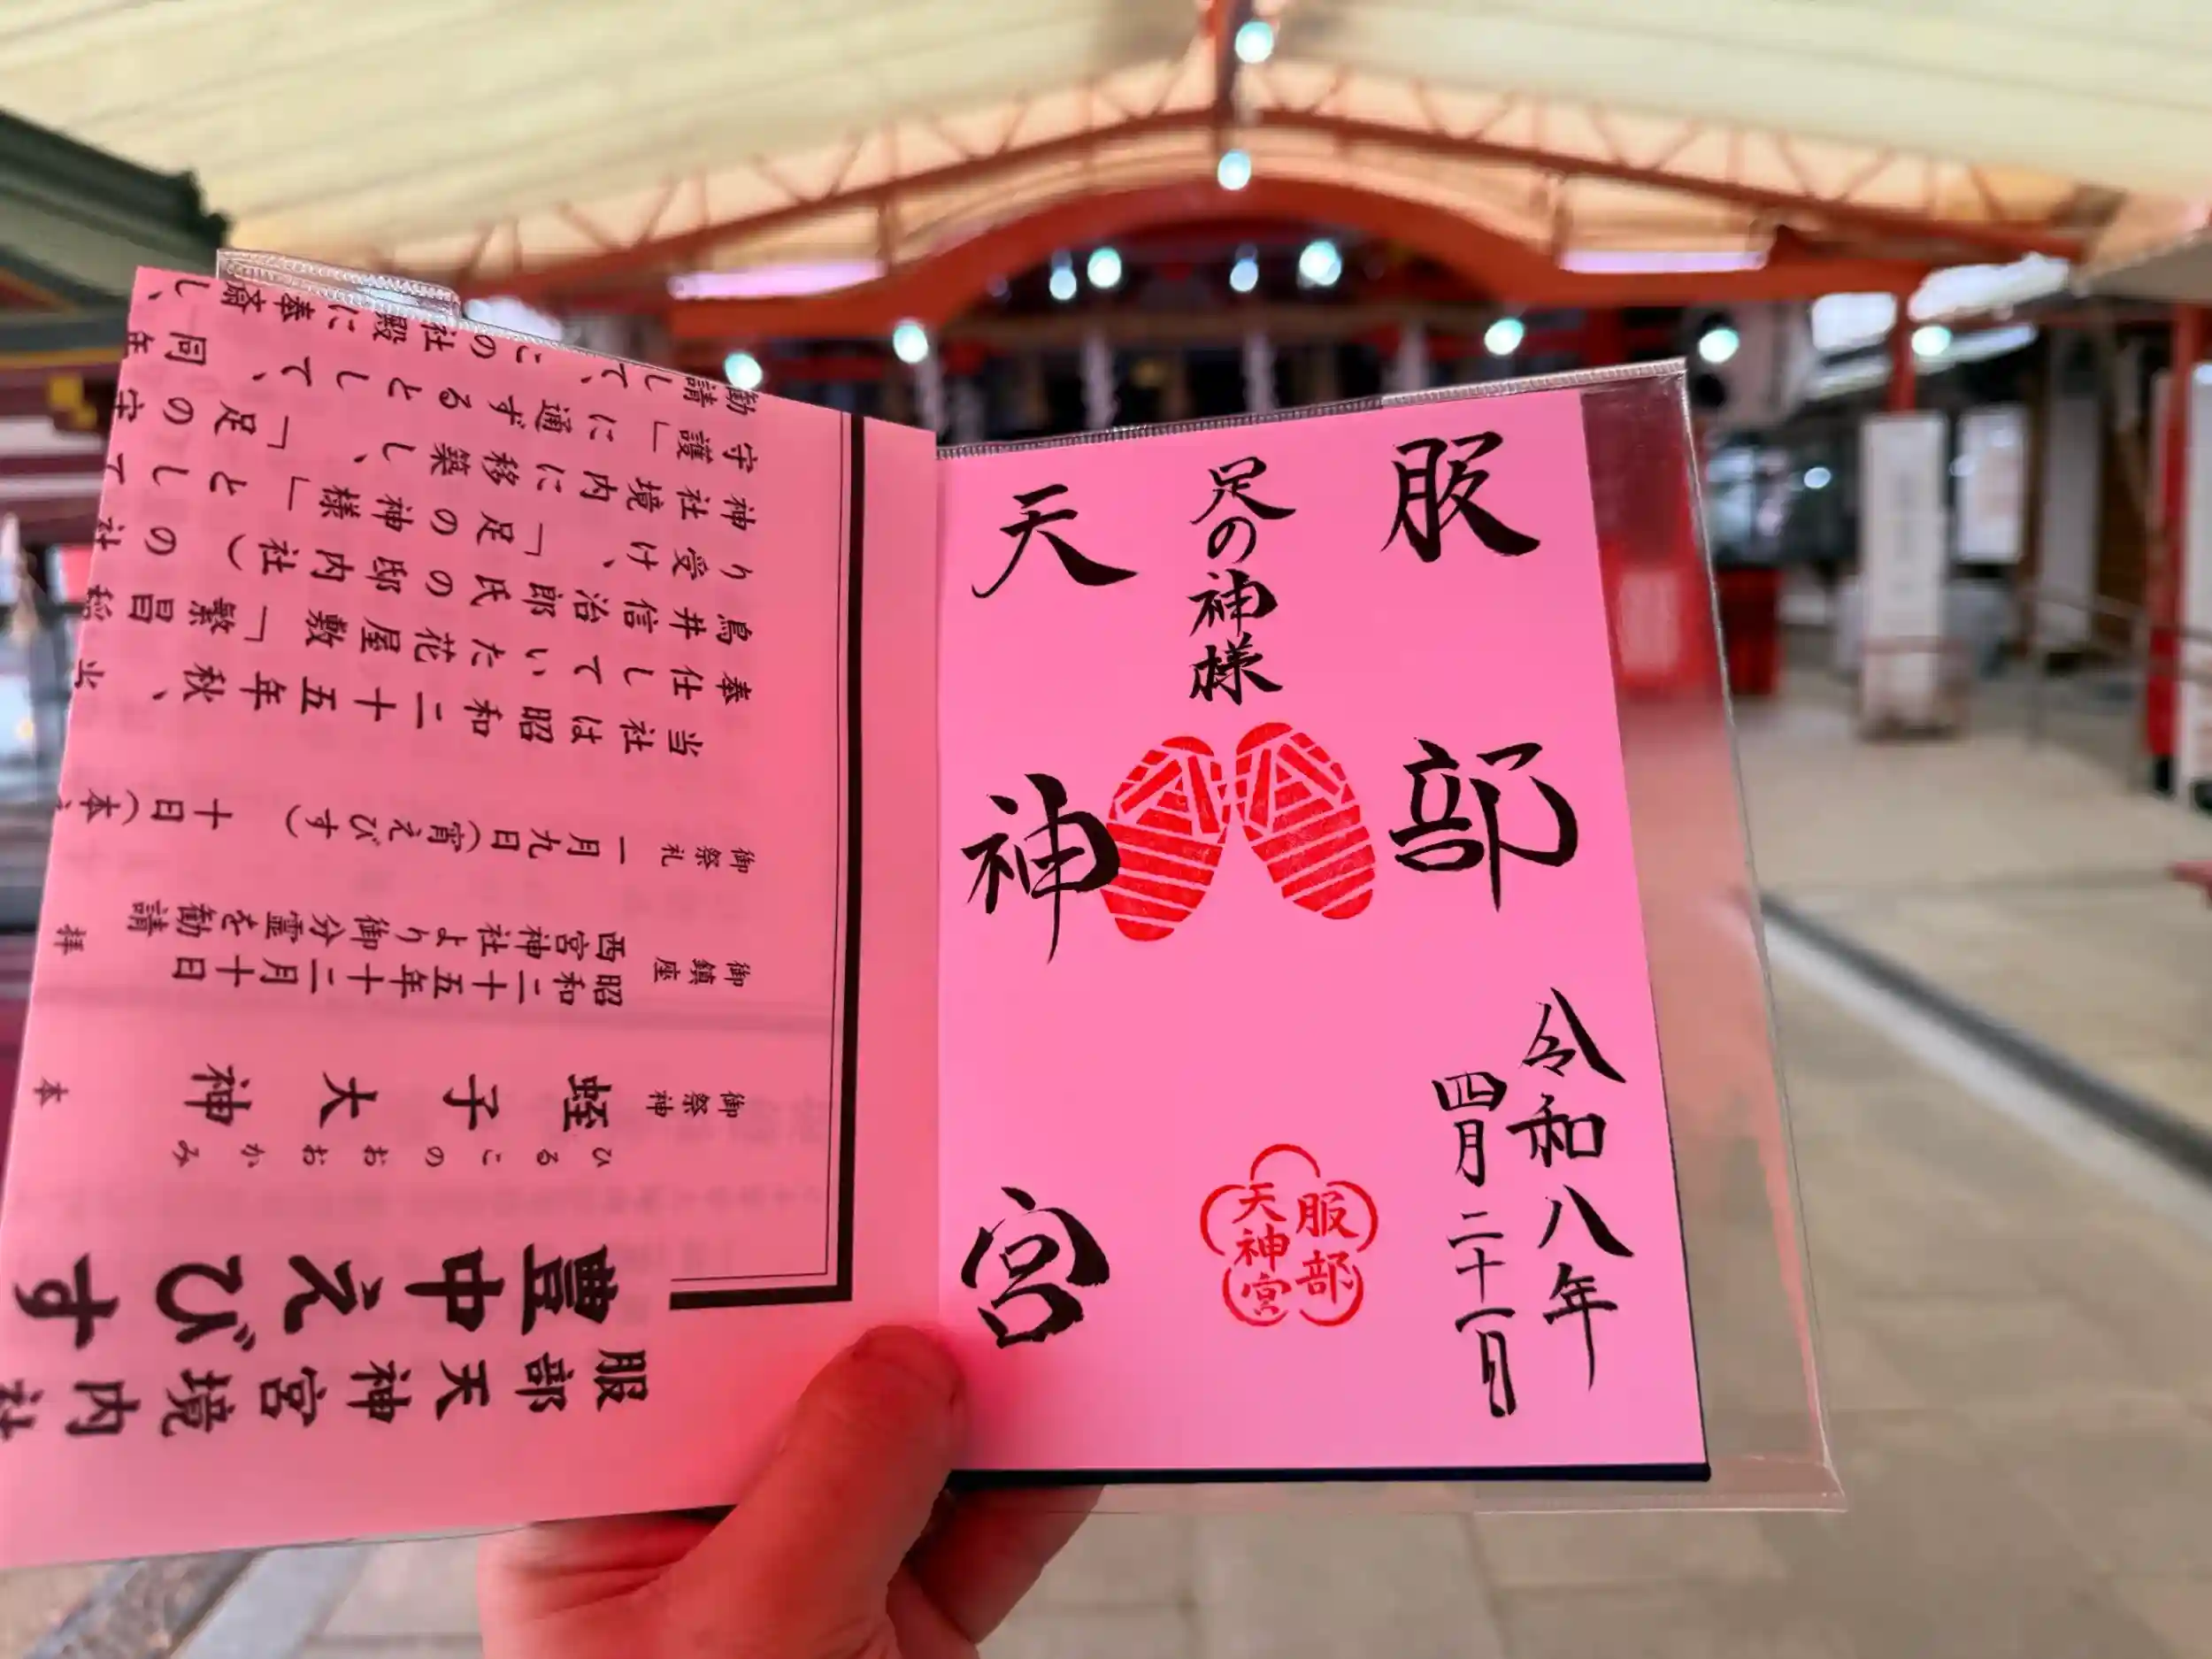 服部
天神宮
足の神様
令和八年
四月二十一日
服部
天神宮
服部天神宮境内社
豊中えびす
御祭神 蛭子大神 本
ひるこのおおかみ
御鎮座 昭和二十五年十二月十日
西宮神社より御分霊を勧請 拝
御祭礼 一月九日(宵えびす) 十日(本
当社は昭和二十五年秋、当
奉仕していた花屋敷「繁昌稲
鳥井信治郎氏の邸内社)の社
り受け、「足の神様」として
神社境内に移築し、「足の守
守護」に通ずるとして、同年
勧請して、この社殿に奉斎し、